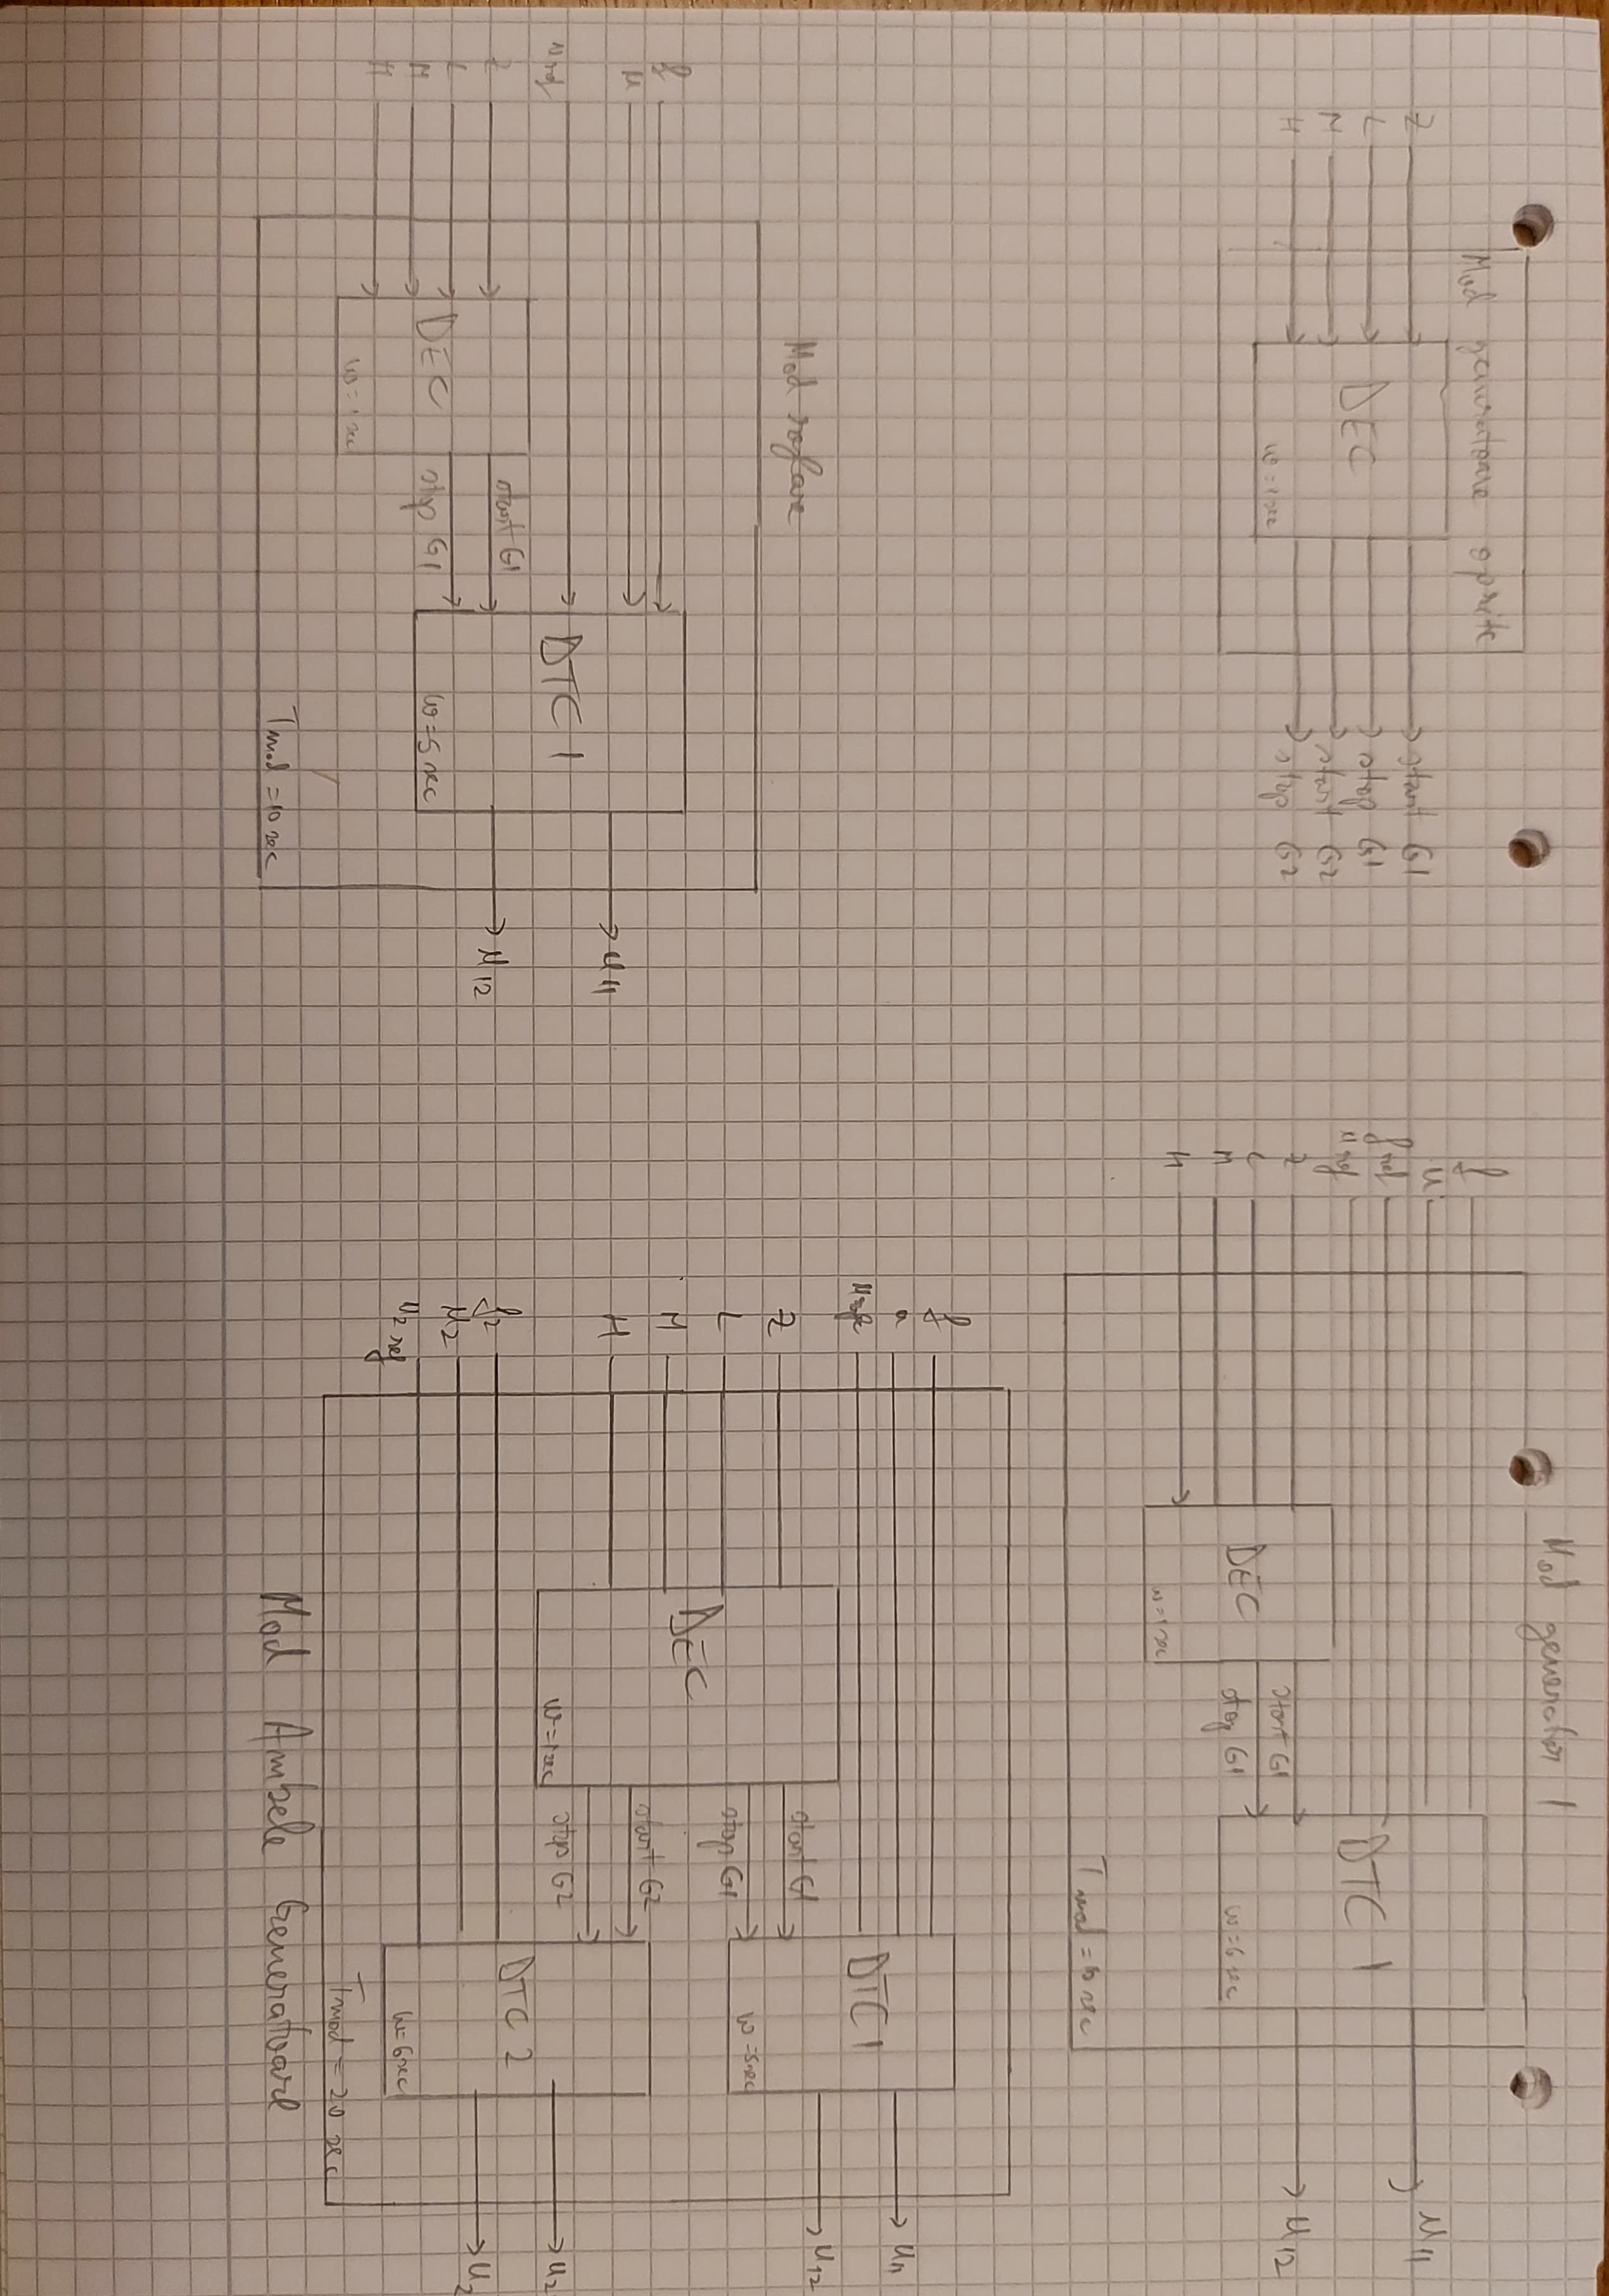 Mod generatoare oprite
Z
L
M
H
DEC
w=1sec
start G1
stop G1
start G2
stop G2
Mod generator 1
f
u
f ref
u ref
Z
L
M
H
DEC
w=1sec
start G1
stop G1
DTC 1
w=6sec
Tmod = 6 sec
u11
u12
f
u
u ref
Z
L
M
H
DEC
w=1sec
start G1
stop G1
DTC 1
w=5 sec
Tmod = 10 sec
u11
u12
f
u
u ref
Z
L
M
H
f2
u2
u2 ref
DEC
w=1sec
start G1
stop G1
start G2
stop G2
DTC 1
w=5sec
DTC 2
w=6sec
Tmod = 20 sec
u11
u12
Mod Ambele Generatoare